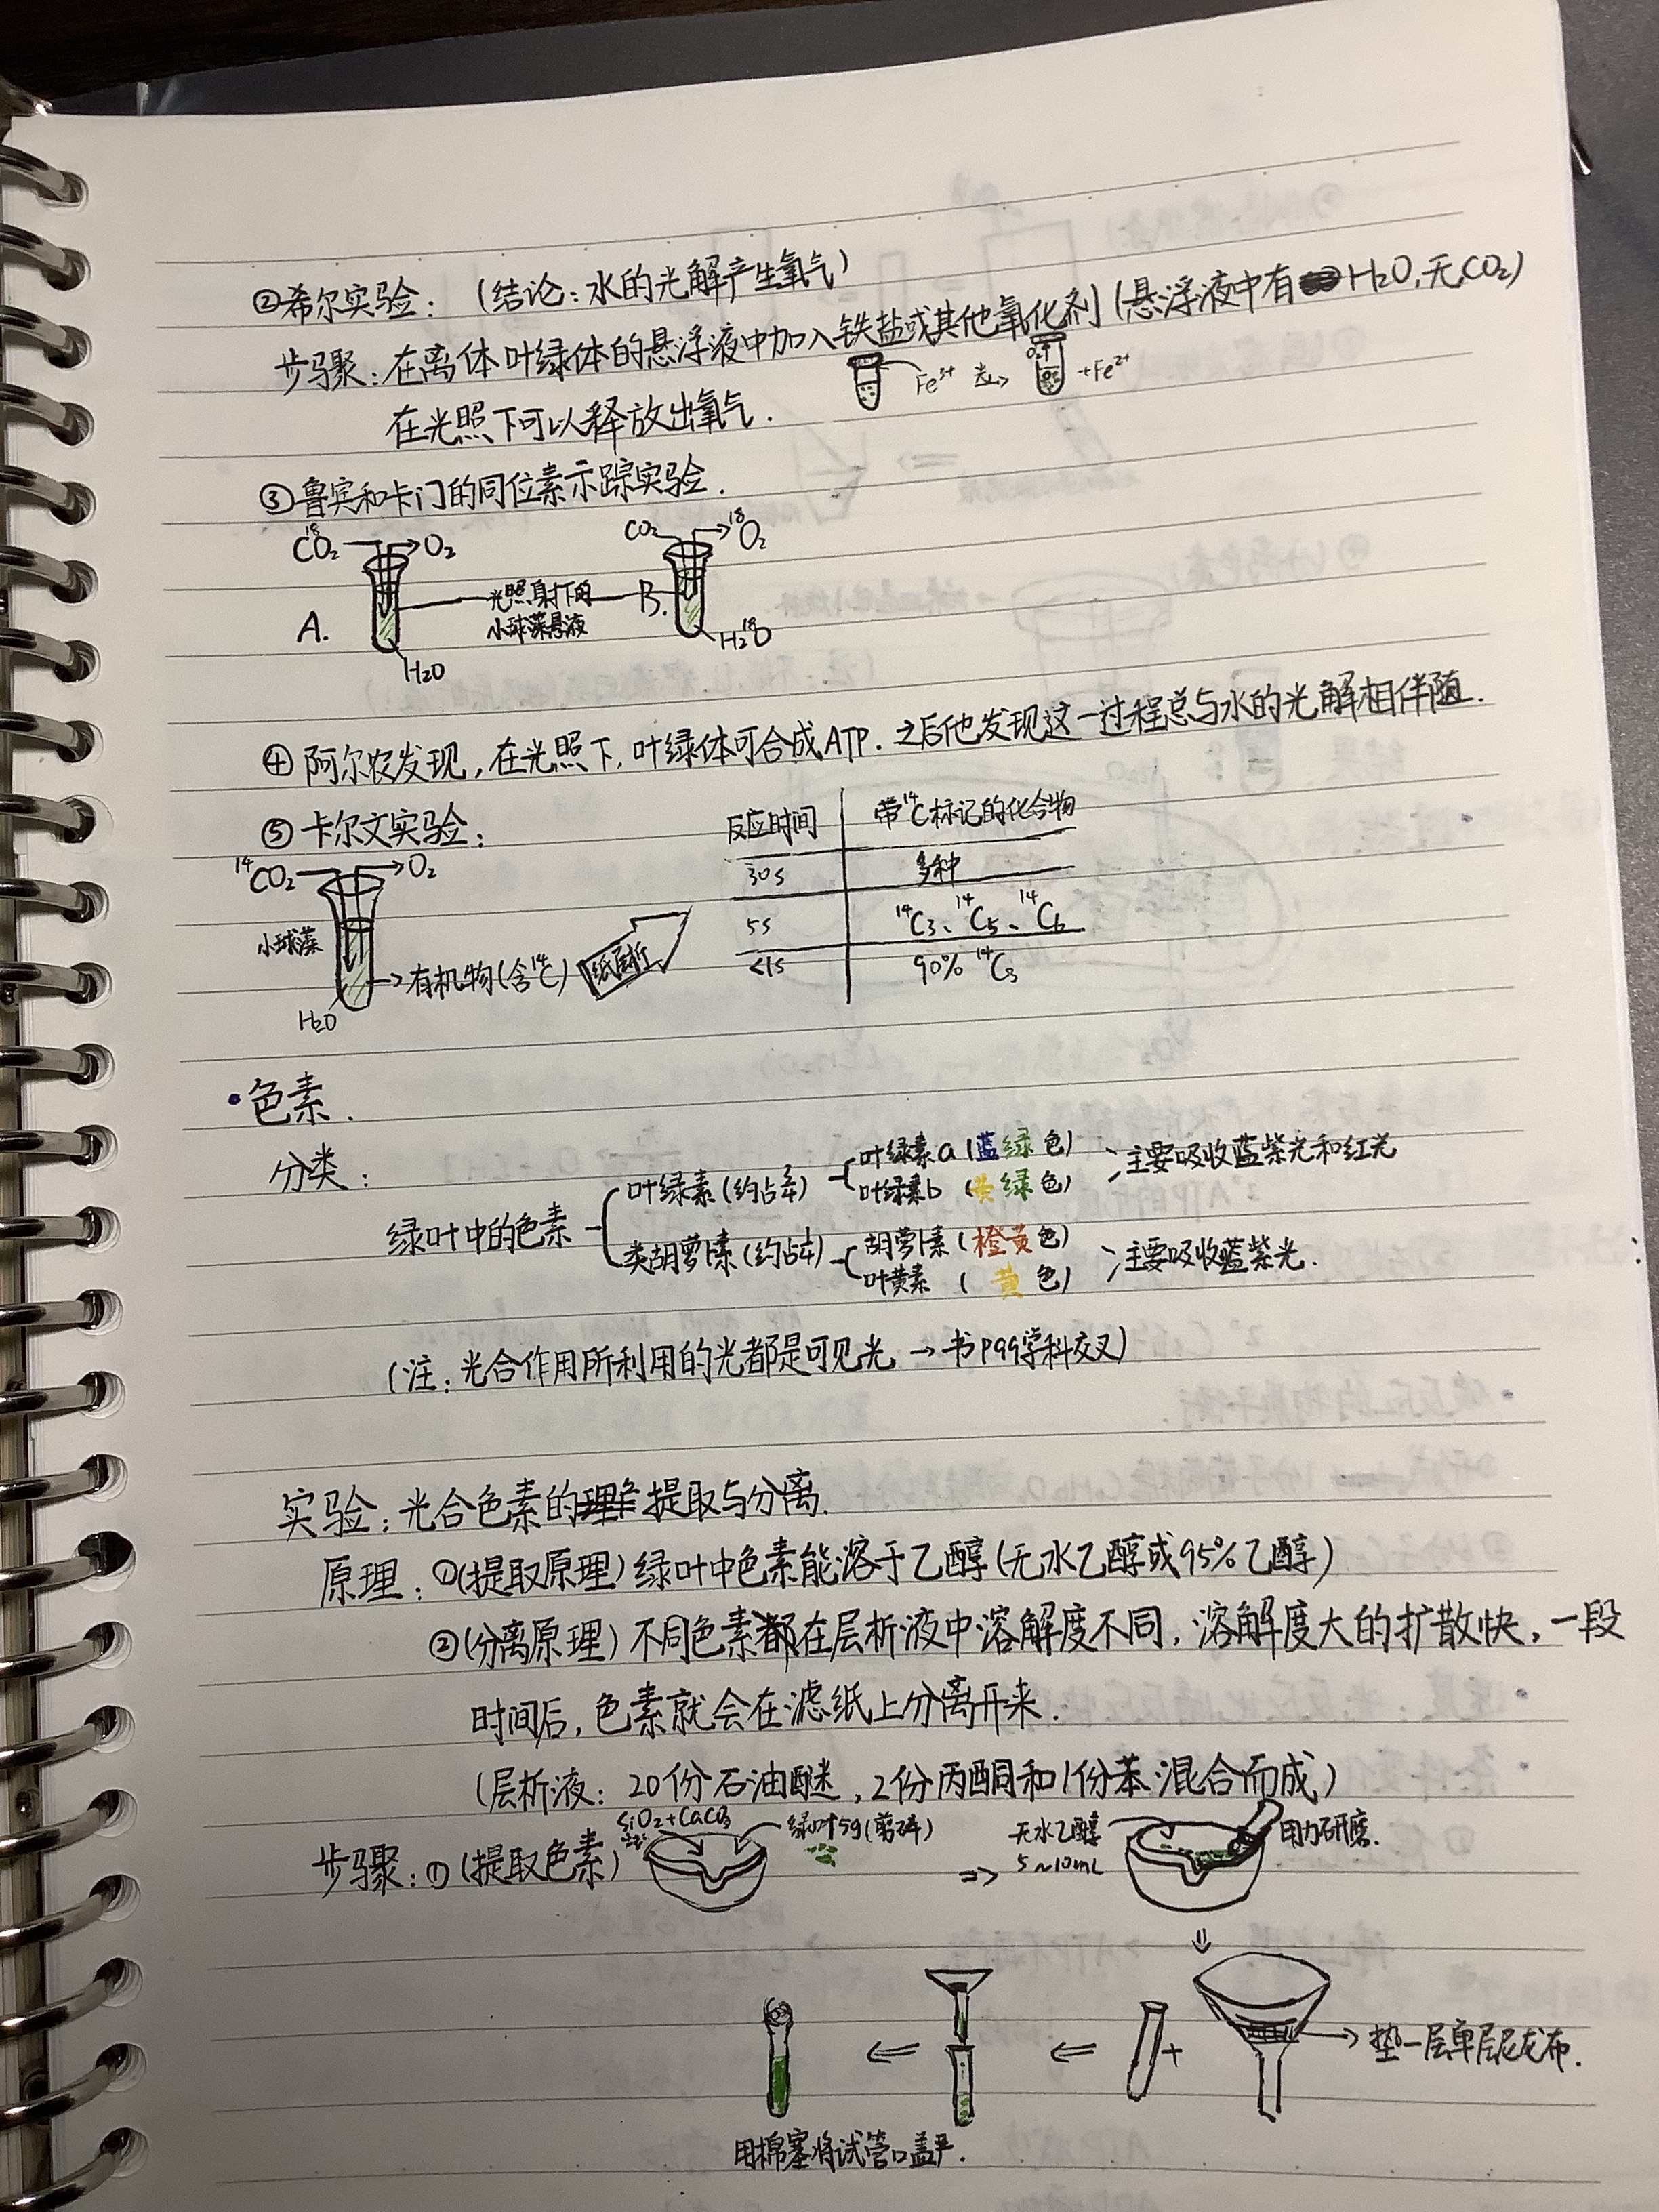 ②希尔实验：（结论：水的光解产生氧气）
步骤：在离体叶绿体的悬浮液中加入铁盐或其他氧化剂（悬浮液中有H₂O，无CO₂）
Fe³⁺ 光→ O₂↑ +Fe²⁺
在光照下可以释放出氧气．
③鲁宾和卡门的同位素示踪实验．
C¹⁸O₂ →O₂ CO₂ →¹⁸O₂
A. 光照射下的小球藻悬液 B.
H₂O H₂¹⁸O
④阿尔农发现，在光照下，叶绿体可合成ATP．之后他发现这一过程总与水的光解相伴随．
⑤卡尔文实验：
¹⁴CO₂ →O₂
小球藻
→有机物（含¹⁴C） 纸层析
H₂O
反应时间 带¹⁴C标记的化合物
30s 多种
5s ¹⁴C₃、¹⁴C₅、¹⁴C₆
<1s 90% ¹⁴C₃
·色素．
分类：
叶绿素a（蓝绿色）
叶绿素（约占3/4） 叶绿素b（黄绿色） 主要吸收蓝紫光和红光
绿叶中的色素
类胡萝卜素（约占1/4） 胡萝卜素（橙黄色）
叶黄素（黄色） 主要吸收蓝紫光．
（注：光合作用所利用的光都是可见光→书P99学科交叉）
实验：光合色素的提取与分离．
原理：①（提取原理）绿叶中色素能溶于乙醇（无水乙醇或95%乙醇）
②（分离原理）不同色素都在层析液中溶解度不同，溶解度大的扩散快，一段
时间后，色素就会在滤纸上分离开来．
（层析液：20份石油醚，2份丙酮和1份苯混合而成）
步骤：①（提取色素） SiO₂+CaCO₃ 绿叶5g（剪碎） ⇒ 无水乙醇 5~10mL 用力研磨．
+ →垫一层单层尼龙布．
用棉塞将试管口盖严．